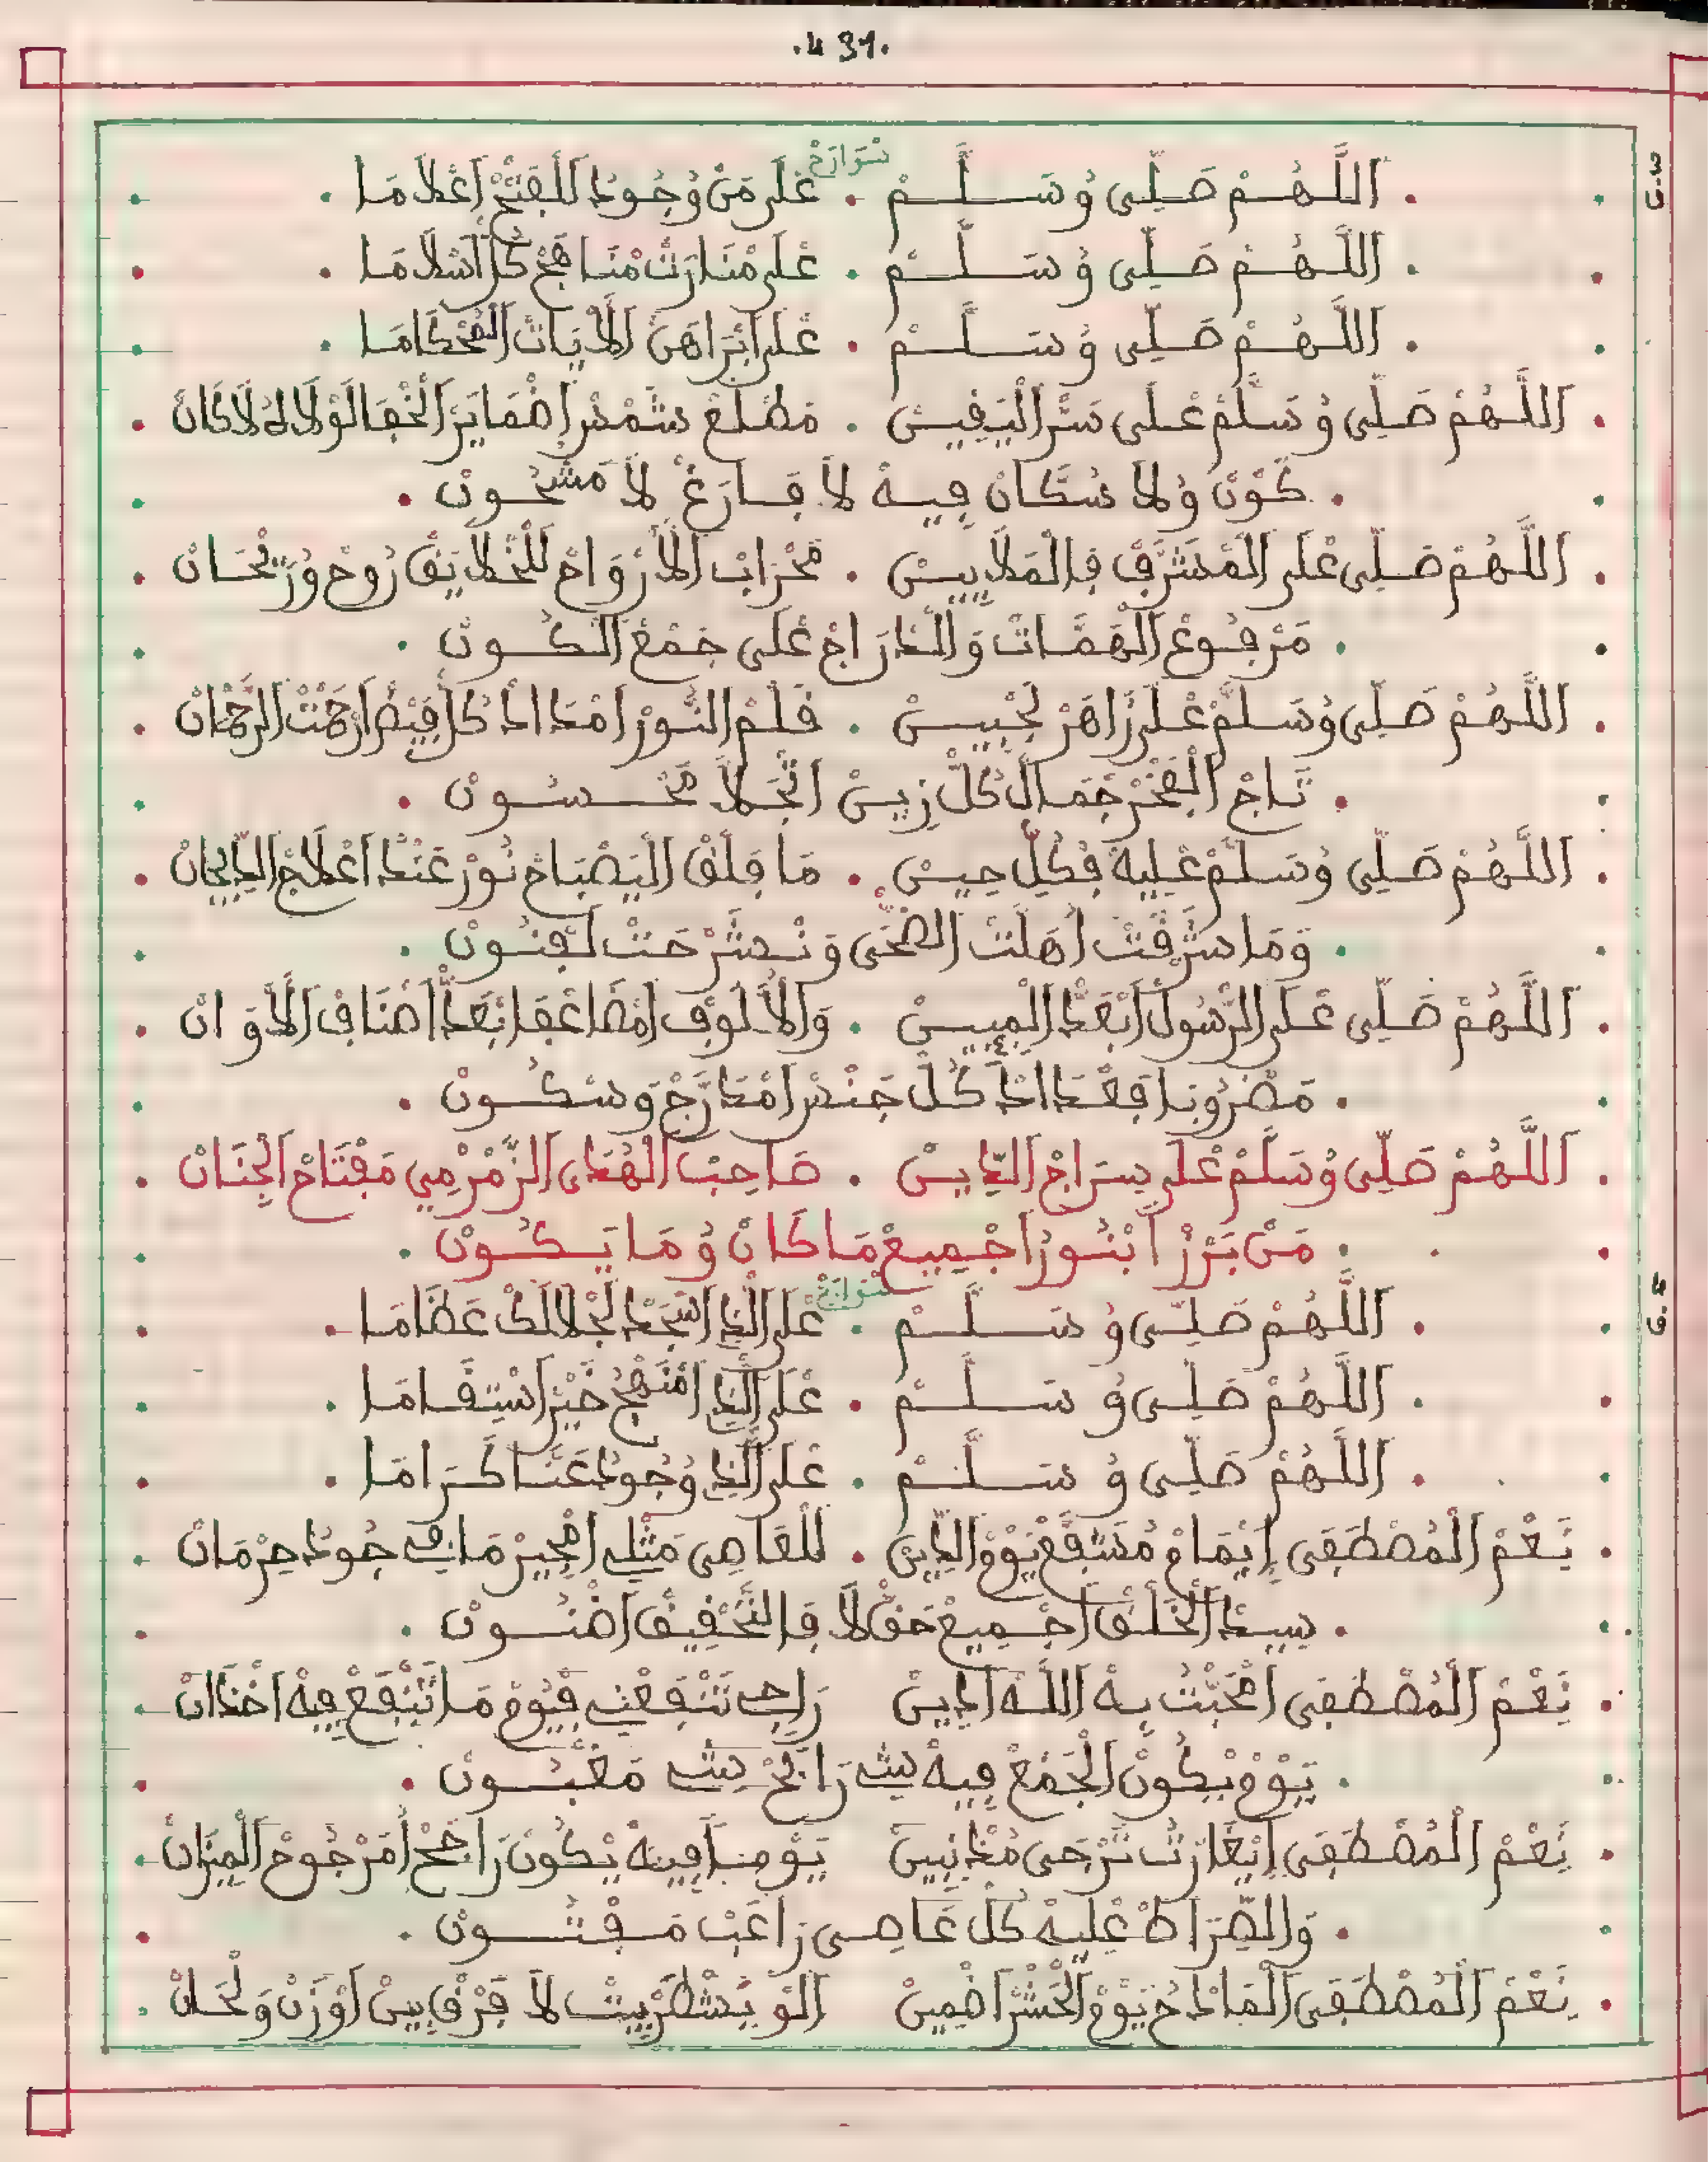 .431.
سْوَارَحْ
اللَّهُمْ صَلِّي وُسَلَّمْ . عْلَى مَنْ وُجُودُ اللْفَتْحْ اَعْلَامَا
ق.س
اللَّهُمْ صَلِّي وُسَلَّمْ . عْلَى مْنَارَتْ مْنَاهَجْ كُلْ اَسْلَامَا
اللَّهُمْ صَلِّي وُسَلَّمْ . عْلَى اَبْرَاهَنْ الَايَاتْ الْمُحْكَامَا
اللَّهُمْ صَلِّي وُسَلَّمْ عْلَى سَرّْ الْيَقِيسْ . مَطْلَعْ شَمْسْ اضْمَايَرْ الْخْفَا لَوْلَاهُ لَا كَانْ
كَوْنْ وُلَا سُكَّانْ فِيهْ لَا فَارَغْ لَا مَشْحُونْ
اللَّهُمْ صَلِّي عْلَى الْمْشَرَّفْ فِالْمَلَايِيسْ . مَحْرَابْ الَارْوَاحْ لَلْخْلَايَقْ رُوحْ وُرَيْحَانْ
مَرْفُوعْ الْهَمَّاتْ وَالدَّارَاجْ عْلَى جَمْعْ الْكُونْ
اللَّهُمْ صَلِّي وُسَلَّمْ عْلَى زَاهَرْ لَجْبِيسْ . قَلْمْ النُّورْ امْدَادْ كُلْ فَيْضْ ارْحَمْتْ الرَّحْمَانْ
تَاجْ الْفَخْرْ جَمَالْ كُلّْ زِيسْ اتْجَلَّا مَحْسُونْ
اللَّهُمْ صَلِّي وُسَلَّمْ عْلِيهْ فْكُلّْ حِيسْ . مَا فْلَقْ الْيَصْبَاحْ نُورْ عَنْدْ اعْلَاجْ الدِّيجَانْ
وَمَا شَرْقَتْ اهَلَّتْ الضْحَى وَنْشَرْحَتْ لَفْنُونْ
اللَّهُمْ صَلِّي عْلَى الرَّسُولْ ابْعَدّْ الْمِييسْ . وَالَالُوفْ امْضَاعْفَا بْعَدّْ اصْنَافْ الَالْوَانْ
مَضْرُوبَا فَعْدَادْ كُلّْ جَنْسْ امْدَرَّجْ وَسْكُونْ
اللَّهُمْ صَلِّي وُسَلَّمْ عْلَى سِرَاجْ الدِّيسْ . صَاحِبْ الْهُدَى الزَّمْزْمِي مَفْتَاحْ الْجْنَانْ
مَنْ بَرْزْ ابْنُورْ اجْمِيعْ مَا كَانْ وُمَا يَكُونْ
سْوَارَحْ
اللَّهُمْ صَلِّي وُسَلَّمْ . عْلَى الَّذِي اسْجَدْ لَجْلَالَكْ عَظَامَا
اللَّهُمْ صَلِّي وُسَلَّمْ . عْلَى الَّذِي امْنَهْجُ خَيْرْ اسْتِقَامَا
اللَّهُمْ صَلِّي وُسَلَّمْ . عْلَى الَّذِي وُجُودُ عَنَّا كَرَامَا
نَعْمْ الْمُصْطَفَى اِيْمَامْ مُشَفَّعْ يَوْمْ الدِّينْ . لَلْعَاصِي مَثْلِي امْجِيرْ مَا فِي جُودُ حِرْمَانْ
سِيدْ الْخَلْقْ اجْمِيعْ حَقّْ لَا فِالتَّحْقِيقْ اضْنُونْ
نَعْمْ الْمُصْطَفَى امْحَبّْتْ بِهْ اللَّهْ ادِينْ رَاجِي تَنْفَعْنِي فْيُومْ مَا تَنْفَعْ فِيهْ اخْدَانْ
يَوْمْ يْكُونْ الْجَمْعْ فِيهْ شِي رَابَحْ شِي مَغْبُونْ
نَعْمْ الْمُصْطَفَى اِبْغَارْتُ تَرْحَى مُذْنِبِينْ يَوْمَا فِيهْ يْكُونْ رَاجَحْ امَرْجُوحْ الْمِيزَانْ
وَالصِّرَاطْ عْلِيهْ كُلّْ عَاصِي رَاعَبْ مَفْتُونْ
نَعْمْ الْمُصْطَفَى الْمَادْحُ يَوْمْ الْحَشْرْ اضْمِينْ الَوْ بَشْطَرْ بِيتْ لَا فَرْقْ بِينْ اوْزَنْ وَلْحَانْ